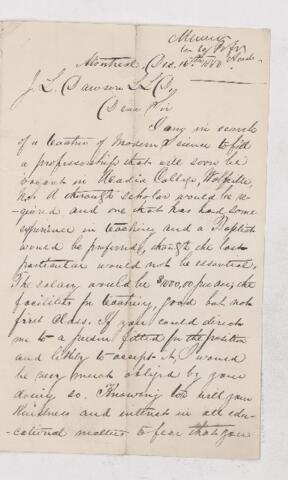 Montreal, Dec. 16th 1880
J. L. Dawson LL.D
Dear Sir
I am in search
of a teacher of Modern Science to fill
a professorship that will soon be
vacant in Acadia College, Wolfville
N.S. A through scholar would be re-
quired and one that has had some
experience in teaching and a Baptist
would be preferred, though the last
particular would not be essential.
The salary would be $1000,00 per ann, the
facilities for teaching, good but not
first class. If you could direct
me to a person fitted for the position
and likely to accept it, I would
be very much obliged by your
doing so. Knowing too well your
kindness and interest in all edu-
cational matters to fear that you